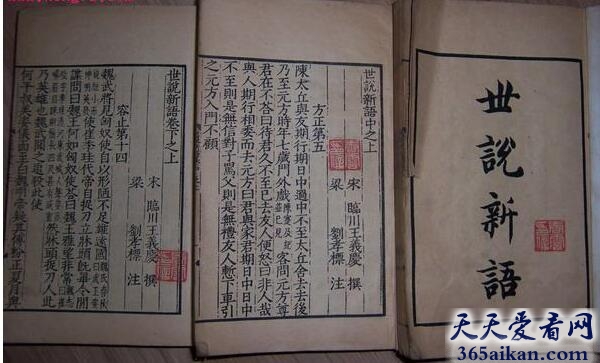 世說新語
世說新語中之上
宋 臨川王義慶 撰
梁 劉孝標 注
方正第五
陳太丘與友行期日中過中不至太丘舍去去後
乃至元方時年七歲門外戲客問元方尊
君在不荅曰待君久不至已去友人便怒曰非人哉
與人期行相委而去元方曰君與家君期日中日中
不至則是無信對子罵父則是無禮友人慙下車引
之元方入門不顧
世說新語卷下之上
宋 臨川王義慶 撰
梁 劉孝標 注
容止第十四
魏武將見匈奴使自以形陋不足雄遠國
使崔季珪代帝自捉刀立牀頭既畢令間
諜問曰魏王何如匈奴使荅曰魏王雅望非常
然牀頭捉刀人此
乃英雄也魏武聞之追殺此使
何平叔美姿儀面至白魏明帝疑其傅粉正夏月與
天天爱看网
365aikan.com